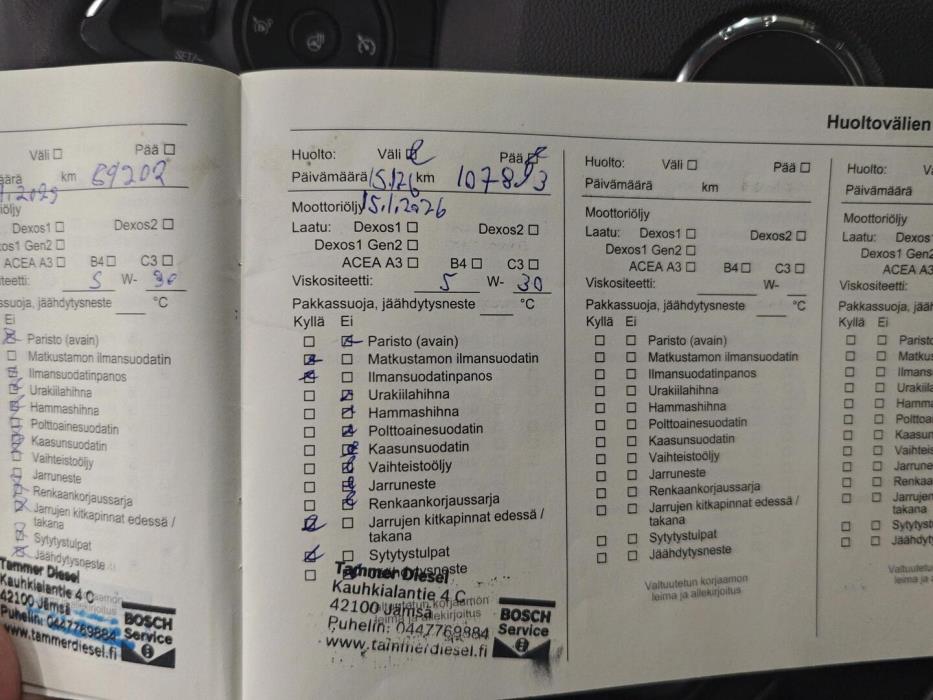 SET/-
Väli Pää
km 89202
Dexos1 Dexos2
ACEA A3 B4 C3
5 W- 30
Pakkassuoja, jäähdytysneste °C
Ei
Paristo (avain)
Matkustamon ilmansuodatin
Ilmansuodatinpanos
Urakiilahihna
Hammashihna
Polttoainesuodatin
Kaasunsuodatin
Vaihteistoöljy
Jarruneste
Renkaankorjaussarja
Jarrujen kitkapinnat edessä /
takana
Sytytystulpat
Jäähdytysneste
Tammer Diesel
Kauhkialantie 4 C
42100 Jämsä
Puhelin: 0447769884
www.tammerdiesel.fi
BOSCH
Service
Huolto: Väli Pää
Päivämäärä 15.1.26 km 107893
Moottoriöljy 15.1.2026
Laatu: Dexos1 Dexos2
Dexos1 Gen2
ACEA A3 B4 C3
Viskositeetti: 5 W- 30
Pakkassuoja, jäähdytysneste °C
Kyllä Ei
Paristo (avain)
Matkustamon ilmansuodatin
Ilmansuodatinpanos
Urakiilahihna
Hammashihna
Polttoainesuodatin
Kaasunsuodatin
Vaihteistoöljy
Jarruneste
Renkaankorjaussarja
Jarrujen kitkapinnat edessä /
takana
Sytytystulpat
Jäähdytysneste
Tammer Diesel
Kauhkialantie 4 C
42100 Jämsä
Puhelin: 0447769884
www.tammerdiesel.fi
Valtuutetun korjaamon
leima ja allekirjoitus
BOSCH
Service
Huoltovälien
Huolto: Väli Pää
Päivämäärä km
Moottoriöljy
Laatu: Dexos1 Dexos2
Dexos1 Gen2
ACEA A3 B4 C3
Viskositeetti: W-
Pakkassuoja, jäähdytysneste °C
Kyllä Ei
Paristo (avain)
Matkustamon ilmansuodatin
Ilmansuodatinpanos
Urakiilahihna
Hammashihna
Polttoainesuodatin
Kaasunsuodatin
Vaihteistoöljy
Jarruneste
Renkaankorjaussarja
Jarrujen kitkapinnat edessä /
takana
Sytytystulpat
Jäähdytysneste
Valtuutetun korjaamon
leima ja allekirjoitus
Huolto:
Päivämäärä
Moottoriöljy
Laatu: Dexos
Dexos1 Ge
ACEA A3
Viskositeetti:
Pakkassuoja, jää
Kyllä Ei
Parist
Matku
Ilmans
Urakiila
Hamma
Polttoa
Kaasun
Vaihteis
Jarrune
Renkaa
Jarrujen
takana
Sytytyst
Jäähdyt
Valtuutetu
leima ja a